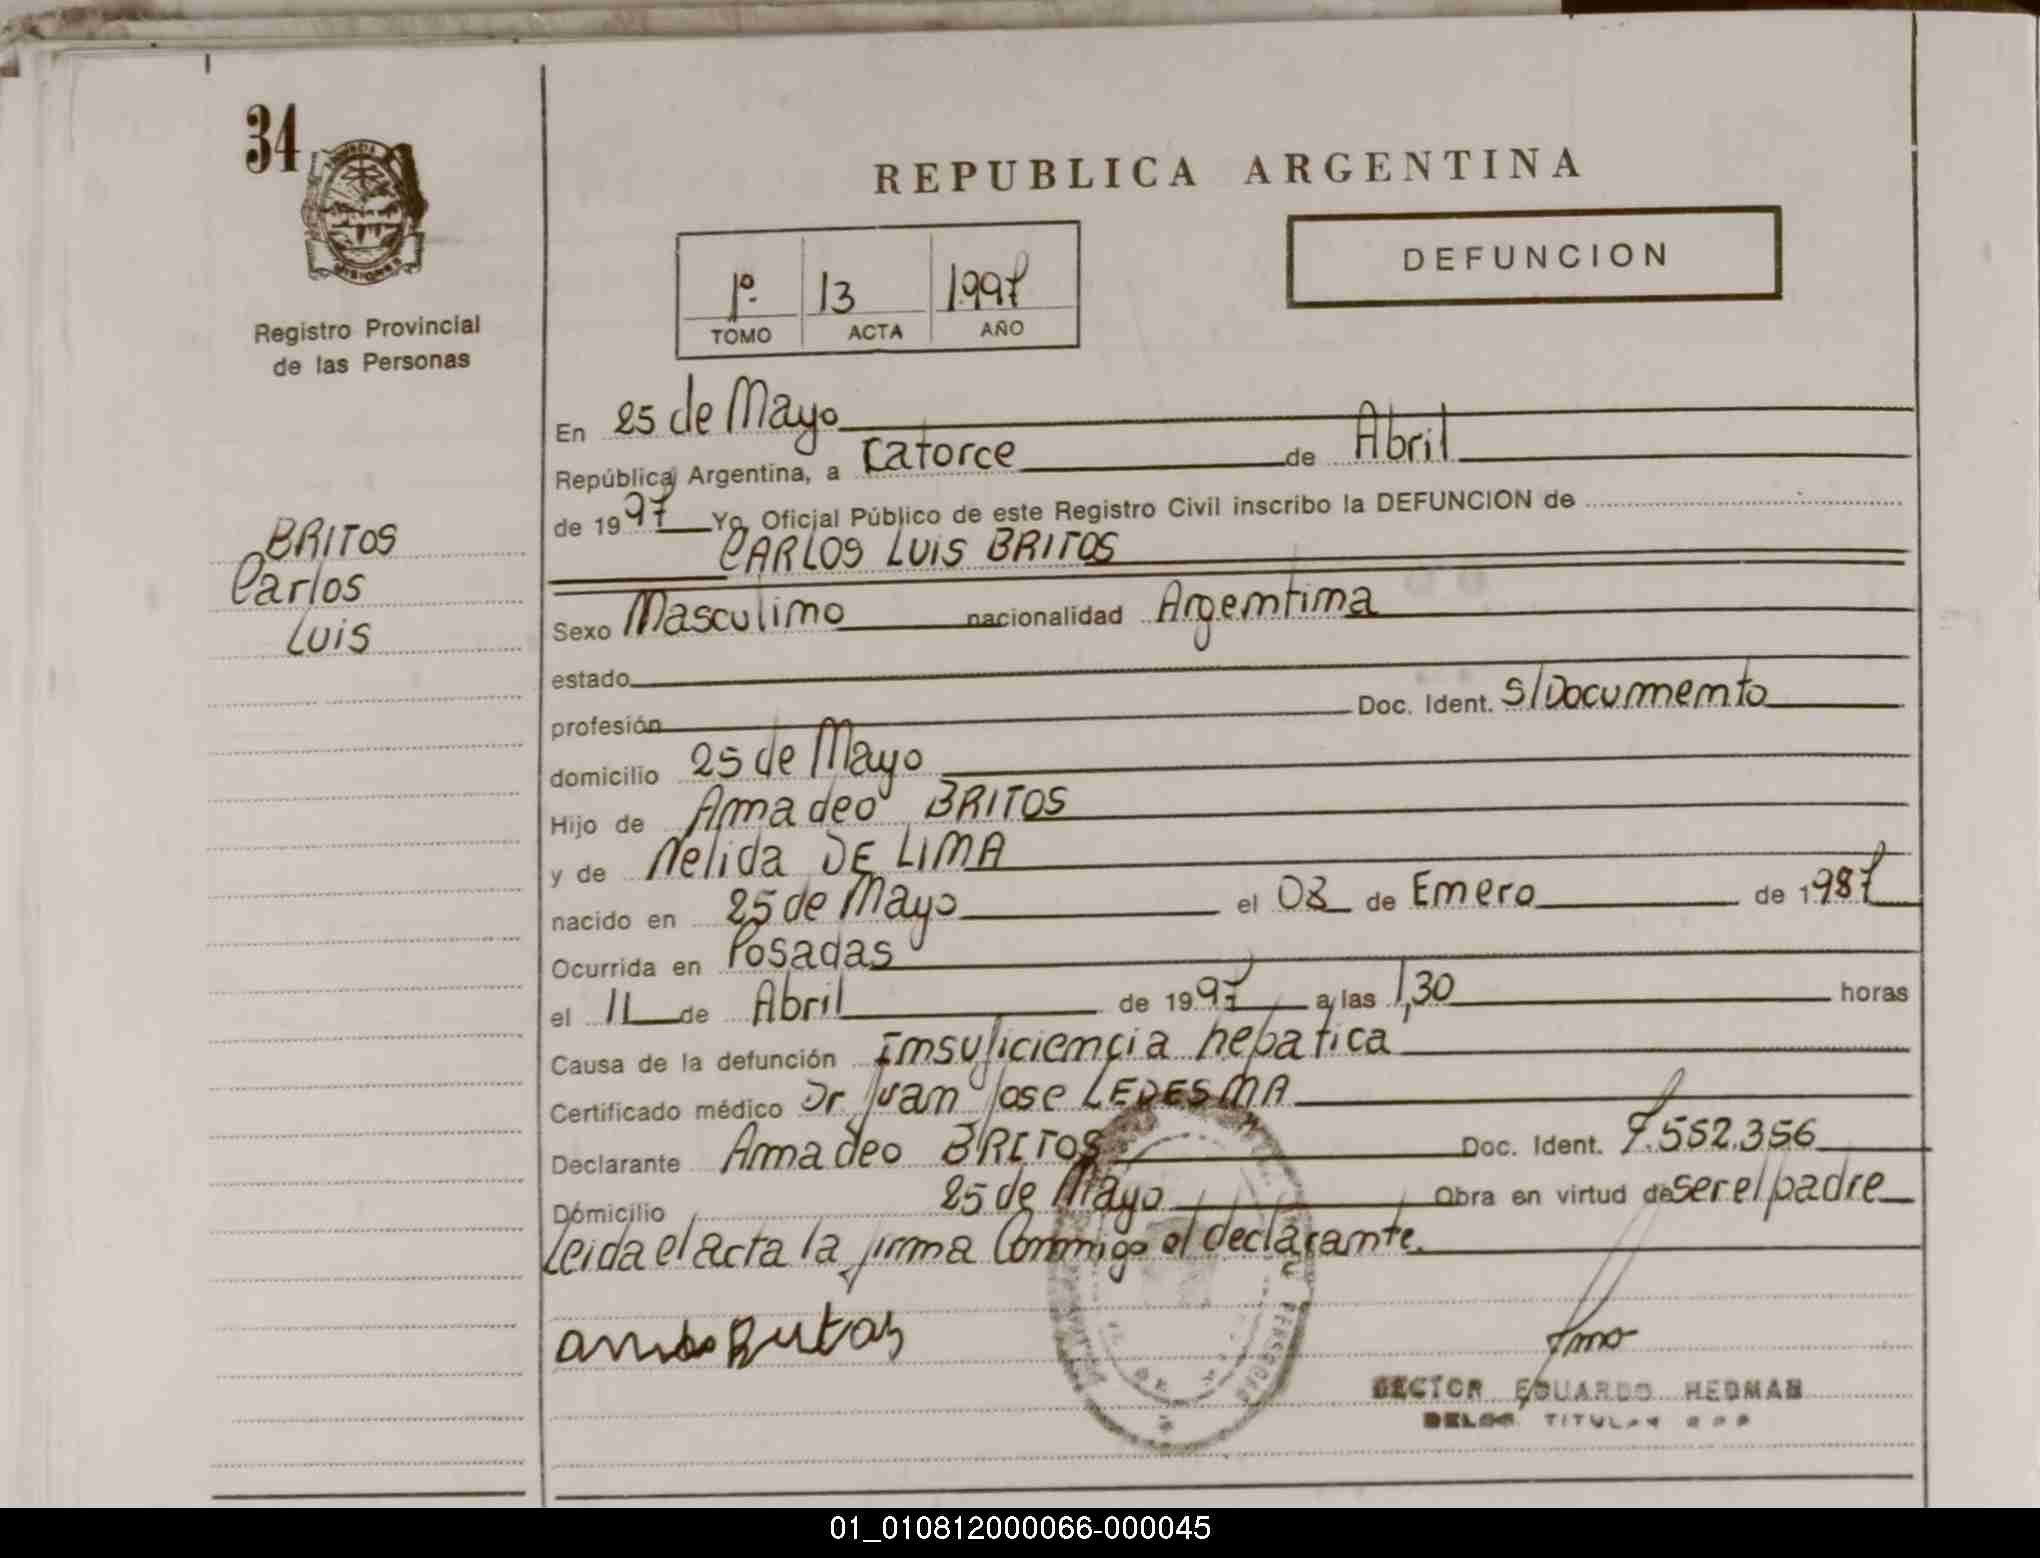 34
REPUBLICA ARGENTINA
DEFUNCION
1º. 13 1997
TOMO ACTA AÑO
Registro Provincial
de las Personas
BRITOS
Carlos
Luis
En 25 de Mayo
República Argentina, a Catorce de Abril
de 1997 Yo, Oficial Público de este Registro Civil inscribo la DEFUNCION de
CARLOS LUIS BRITOS
Sexo Masculino nacionalidad Argentina
estado
profesión Doc. Ident. S/Documento
domicilio 25 de Mayo
Hijo de Amadeo BRITOS
y de Nelida DE LIMA
nacido en 25 de Mayo el 08 de Enero de 1987
Ocurrida en Posadas
el 11 de Abril de 1997 a las 1,30 horas
Causa de la defunción Insuficiencia hepatica
Certificado médico Dr Juan Jose LEDESMA
Declarante Amadeo BRITOS Doc. Ident. 7.552.356
Domicilio 25 de Mayo Obra en virtud de ser el padre
Leida el acta la firma Conmigo el declarante.
EDUARDO HEDMAN
TITULAR
01_010812000066-000045